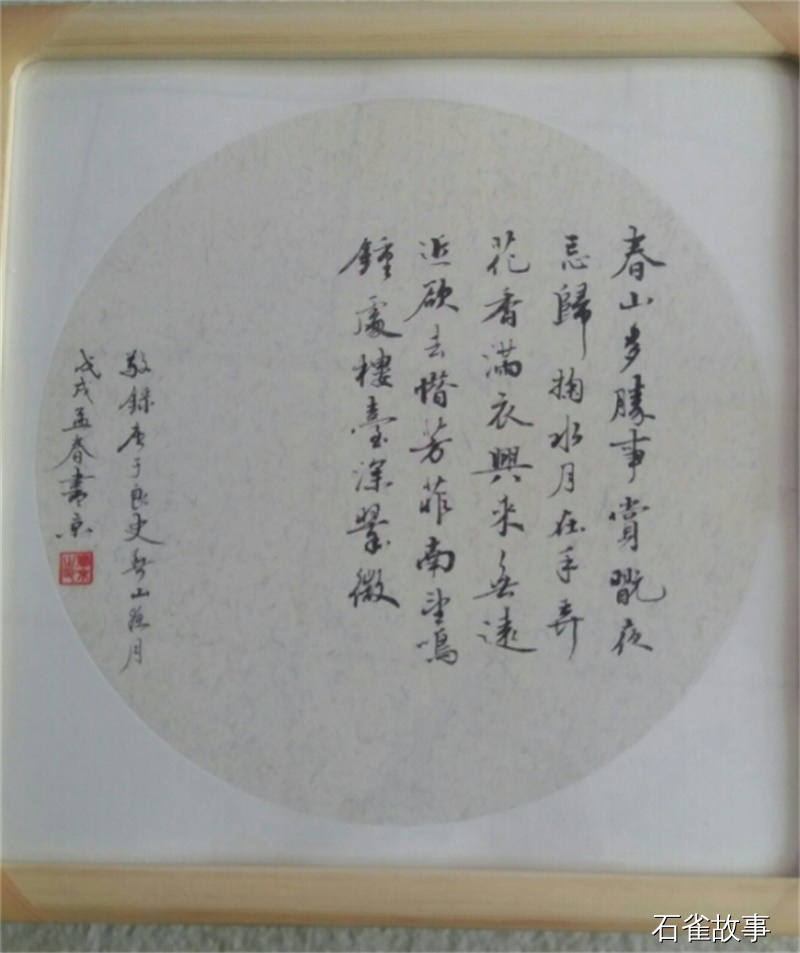 春山多勝事賞翫夜
忘歸掬水月在手弄
花香滿衣興來無遠
近欲去惜芳菲南望鳴
鍾處樓臺深翠微
敬録唐于良史春山夜月
戊戌孟春書京
石雀故事